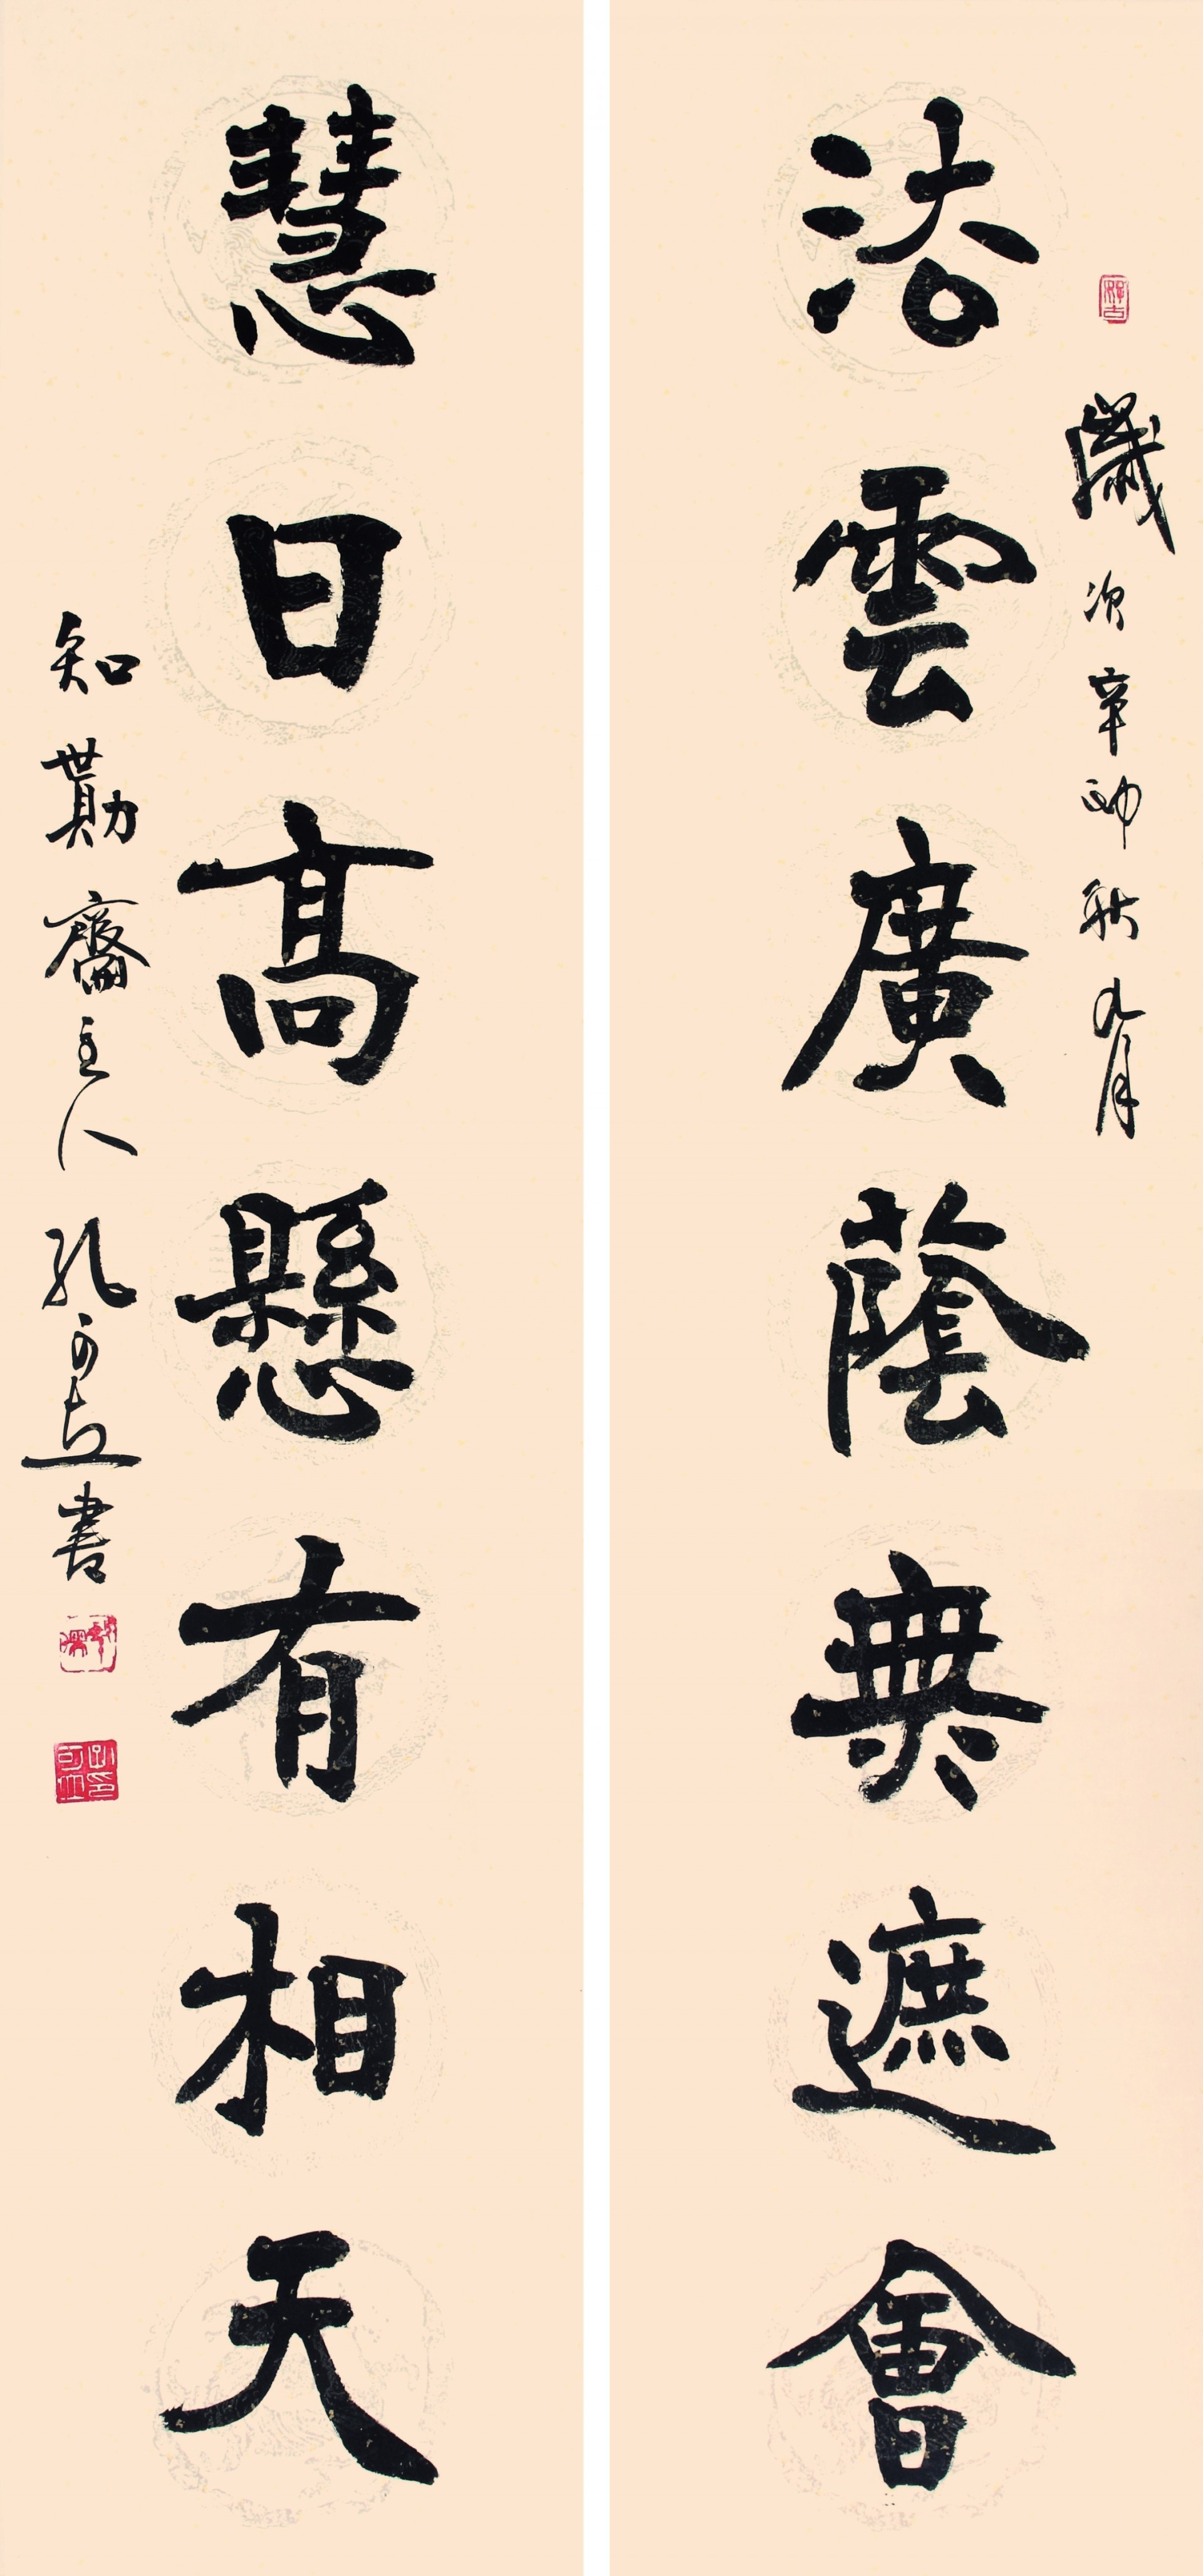 歲次辛卯秋九月
法雲廣蔭無遮會
慧日高懸有相天
知勩齋主人孔可立書